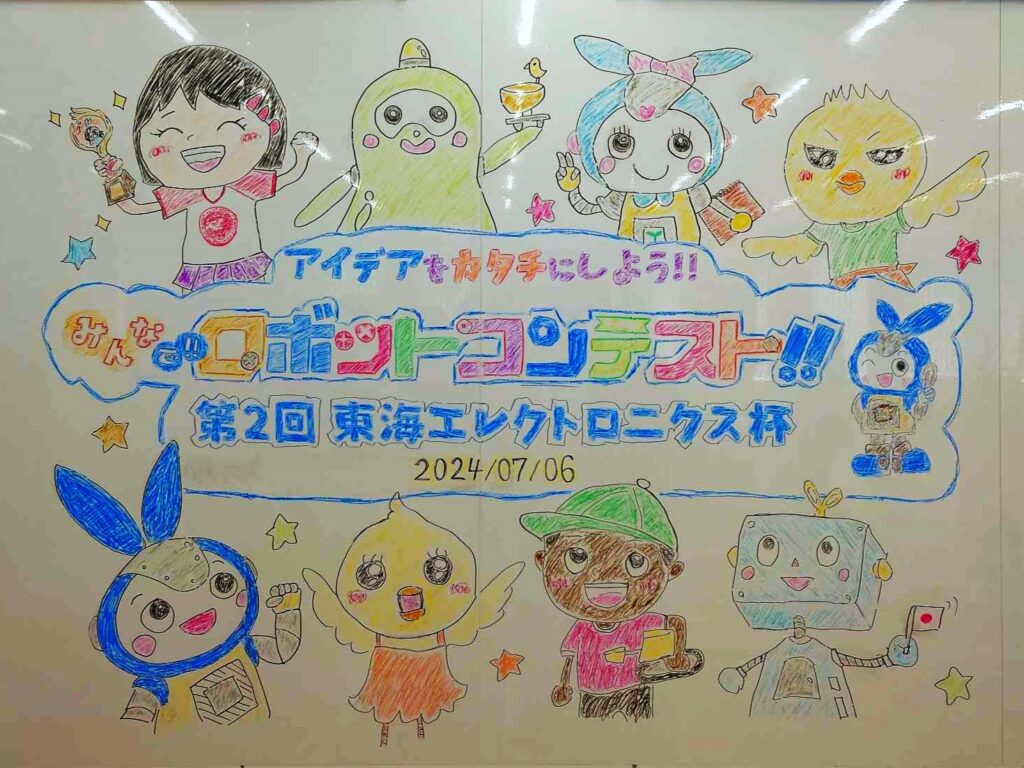 アイデアをカタチにしよう!!
みんなのロボットコンテスト!!
第2回 東海エレクトロニクス杯
2024/07/06